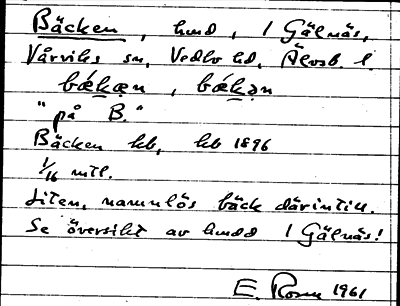 Bäcken, hmd, 1 Gälnäs,
Vårviks sn, Vedbo hd, Älvsb. l.
bǽkæn, bǽkən
"på B."
Bäcken hb, hb 1896
1/16 mtl.
Liten, namnlös bäck därintill.
Se översikt av hmdd 1 Gälnäs!
E. 1961